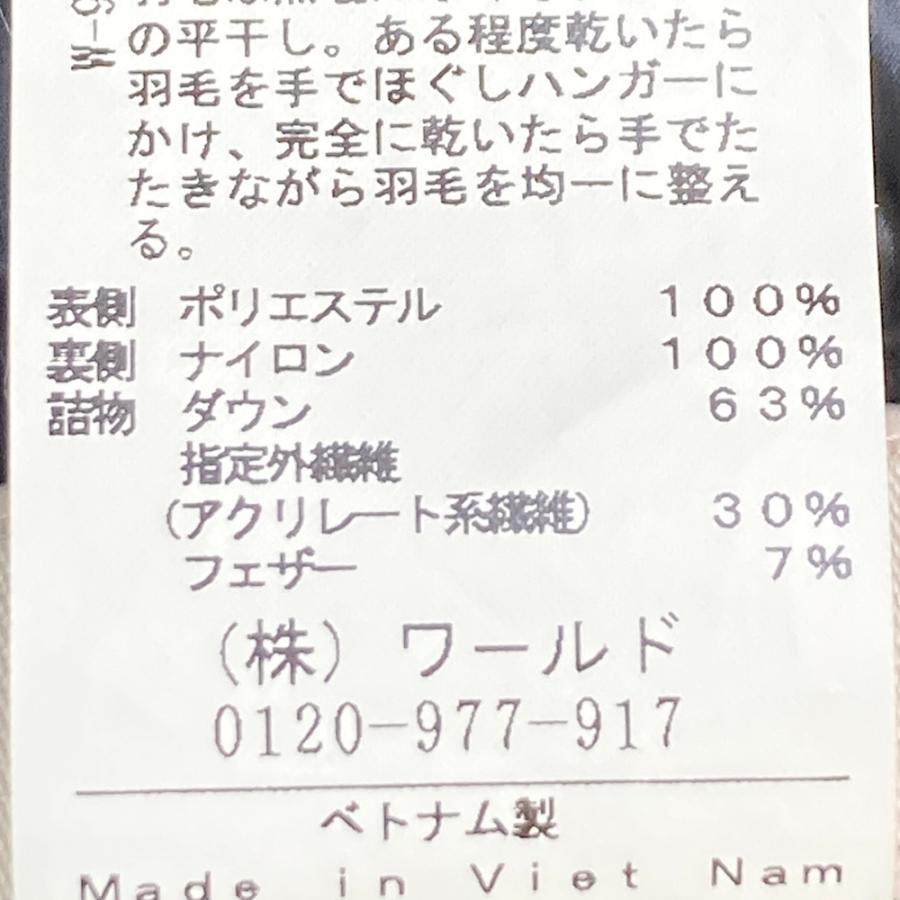 の平干し。ある程度乾いたら
羽毛を手でほぐしハンガーに
かけ、完全に乾いたら手でた
たきながら羽毛を均一に整え
る。
表側 ポリエステル 100%
裏側 ナイロン 100%
詰物 ダウン 63%
指定外繊維
(アクリレート系繊維) 30%
フェザー 7%
(株) ワールド
0120-977-917
ベトナム製
Made in Viet Nam